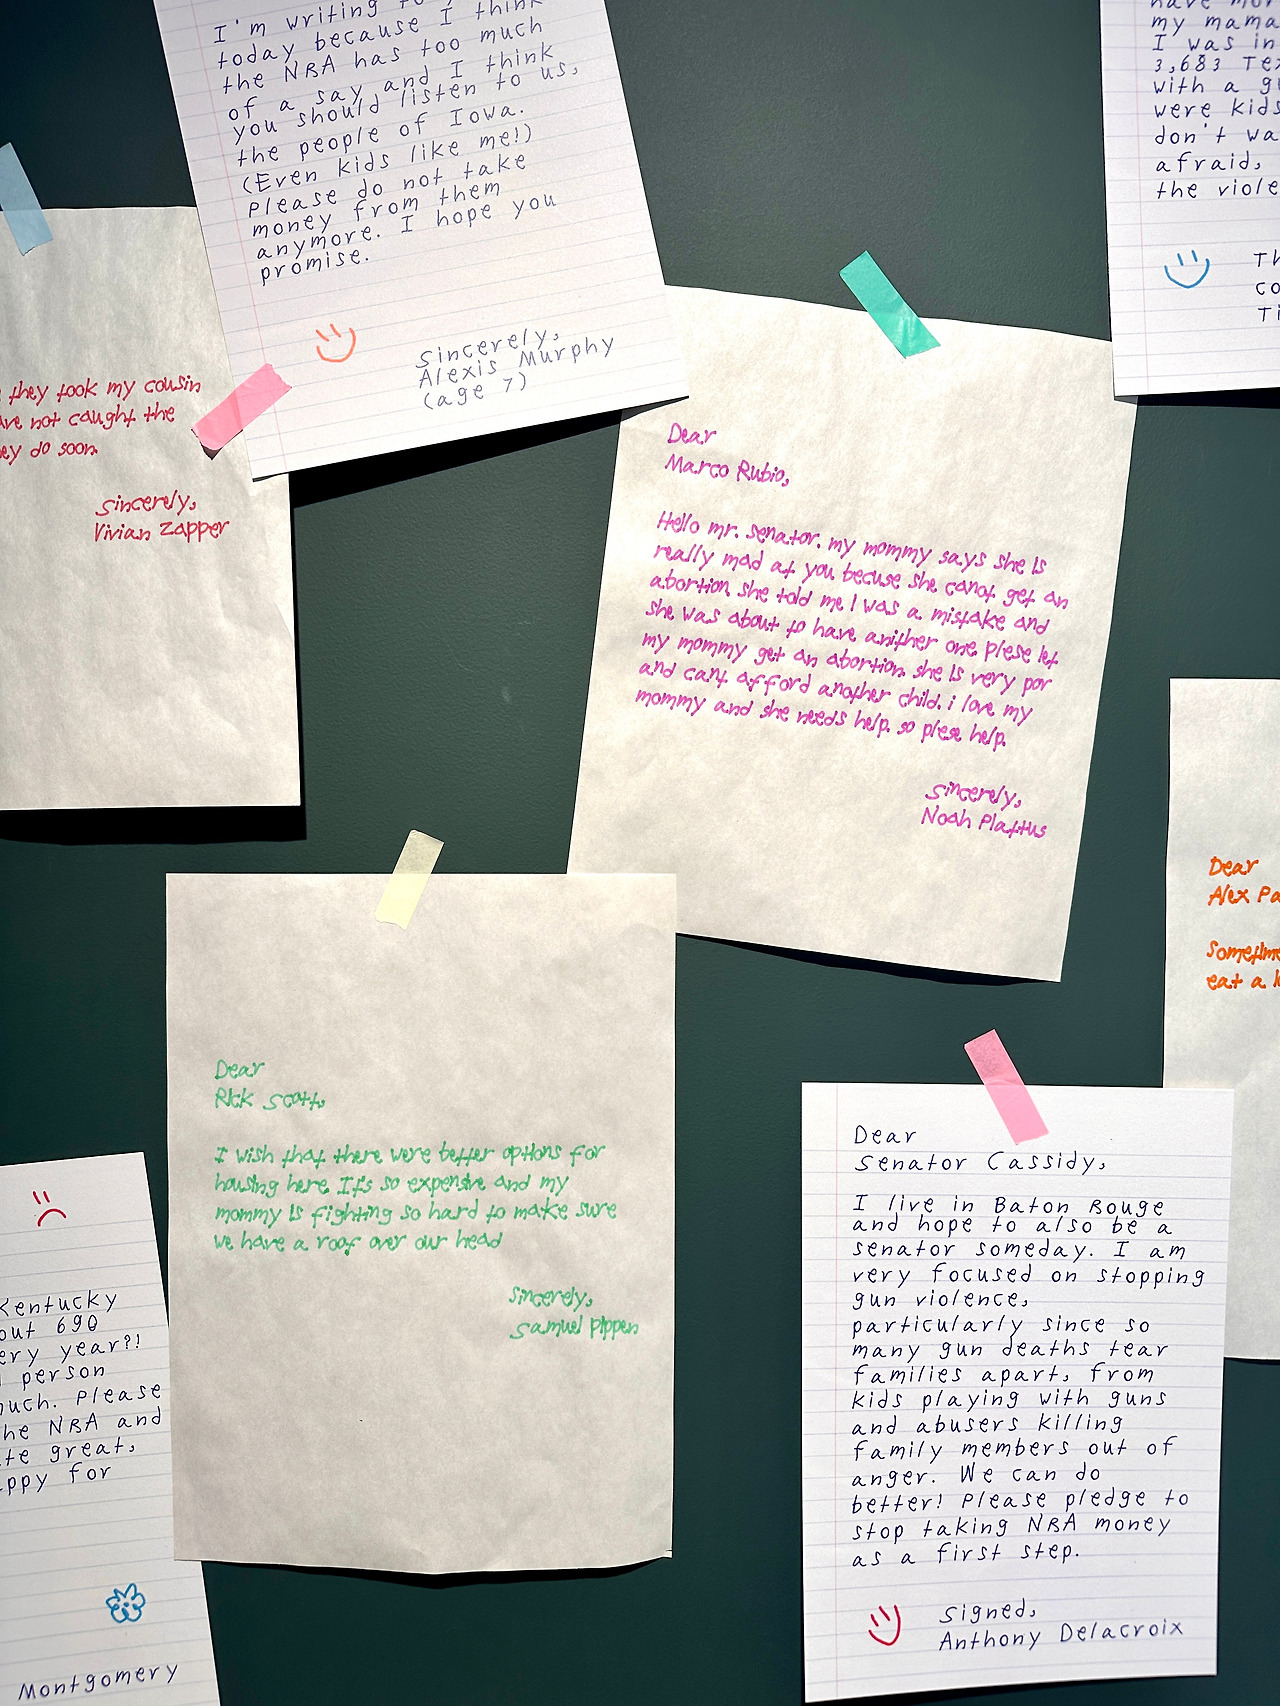 I'm writing
today because I think
the NRA has too much
of a say and I think
you should listen to us,
the people of Iowa.
(Even kids like me!)
Please do not take
money from them
anymore. I hope you
promise.
Sincerely,
Alexis Murphy
(age 7)
my mama
I was in
3,683
with a
were kids
don't
afraid,
the
they took my cousin
not caught the
do soon.
Sincerely,
Vivian Zapper
Dear
Marco Rubio,
Hello mr. senator. my mommy says she is
really mad at you becuse she canot get an
abortion. she told me I was a mistake and
she was about to have anither one. plese let
my mommy get an abortion. she is very por
and cant afford another child. i love my
mommy and she needs help. so plese help.
Sincerely,
Noah Plattus
Dear
Alex
eat a
Dear
Rick Scott,
I wish that there were better options for
housing here. It's so expensive and my
mommy is fighting so hard to make sure
we have a roof over our head
Sincerely,
Samuel Pippen
Kentucky
690
year?!
person
much. Please
the NRA and
great,
for
Montgomery
Dear
Senator Cassidy,
I live in Baton Rouge
and hope to also be a
senator someday. I am
very focused on stopping
gun violence,
particularly since so
many gun deaths tear
families apart, from
kids playing with guns
and abusers killing
family members out of
anger. We can do
better! Please pledge to
stop taking NRA money
as a first step.
Signed,
Anthony Delacroix